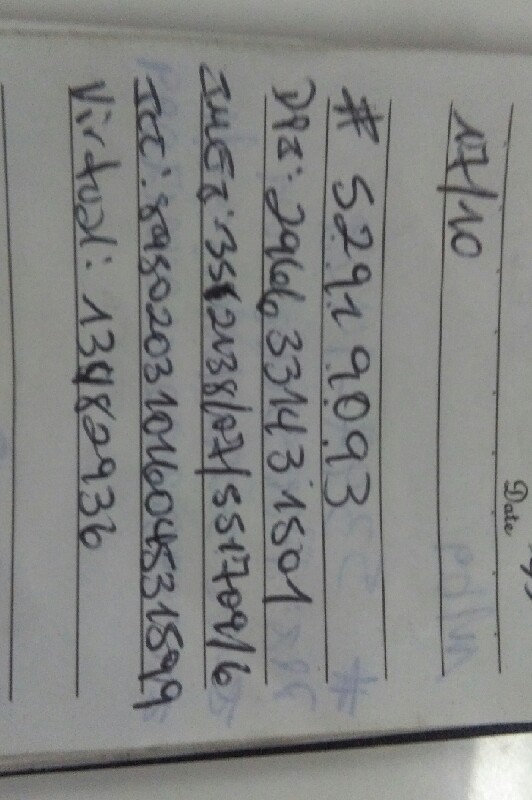 Date
17/10
# 5291 9093
DPI: 2966 33143 1501
IMEI: 3562138/07/551709/6
ICC: 89502031016004531599
Virtual: 13482936